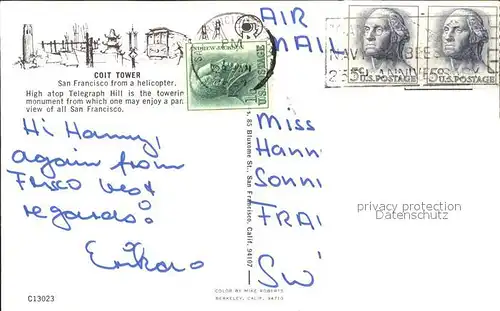 COIT TOWER
San Francisco from a helicopter.
High atop Telegraph Hill is the towerin
monument from which one may enjoy a pan
view of all San Francisco.
Hi Hanny,
again from
Frisco best
regards!
C13023
ANDREW JACKSON
1¢
U.S. POSTAGE
85 Bluxome St., San Francisco, Calif. 94107
COLOR BY MIKE ROBERTS
BERKELEY, CALIF. 94710
AIR
MAIL
5¢ U.S. POSTAGE
5¢ U.S. POSTAGE
Miss
Hann
Sonn
FRA
SWI
privacy protection
Datenschutz